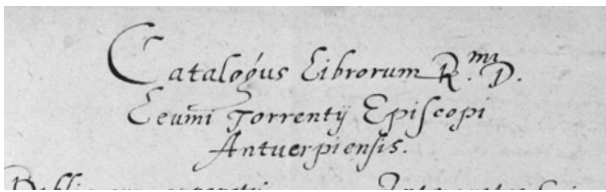 Catalogus Librorum R.mi D.
Leuini Torrentij Episcopi
Antuerpiensis.